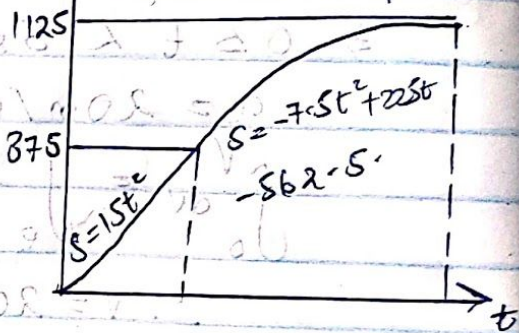 1125
375
S=15t²
S=-7.5t²+225t
-562.5.
t